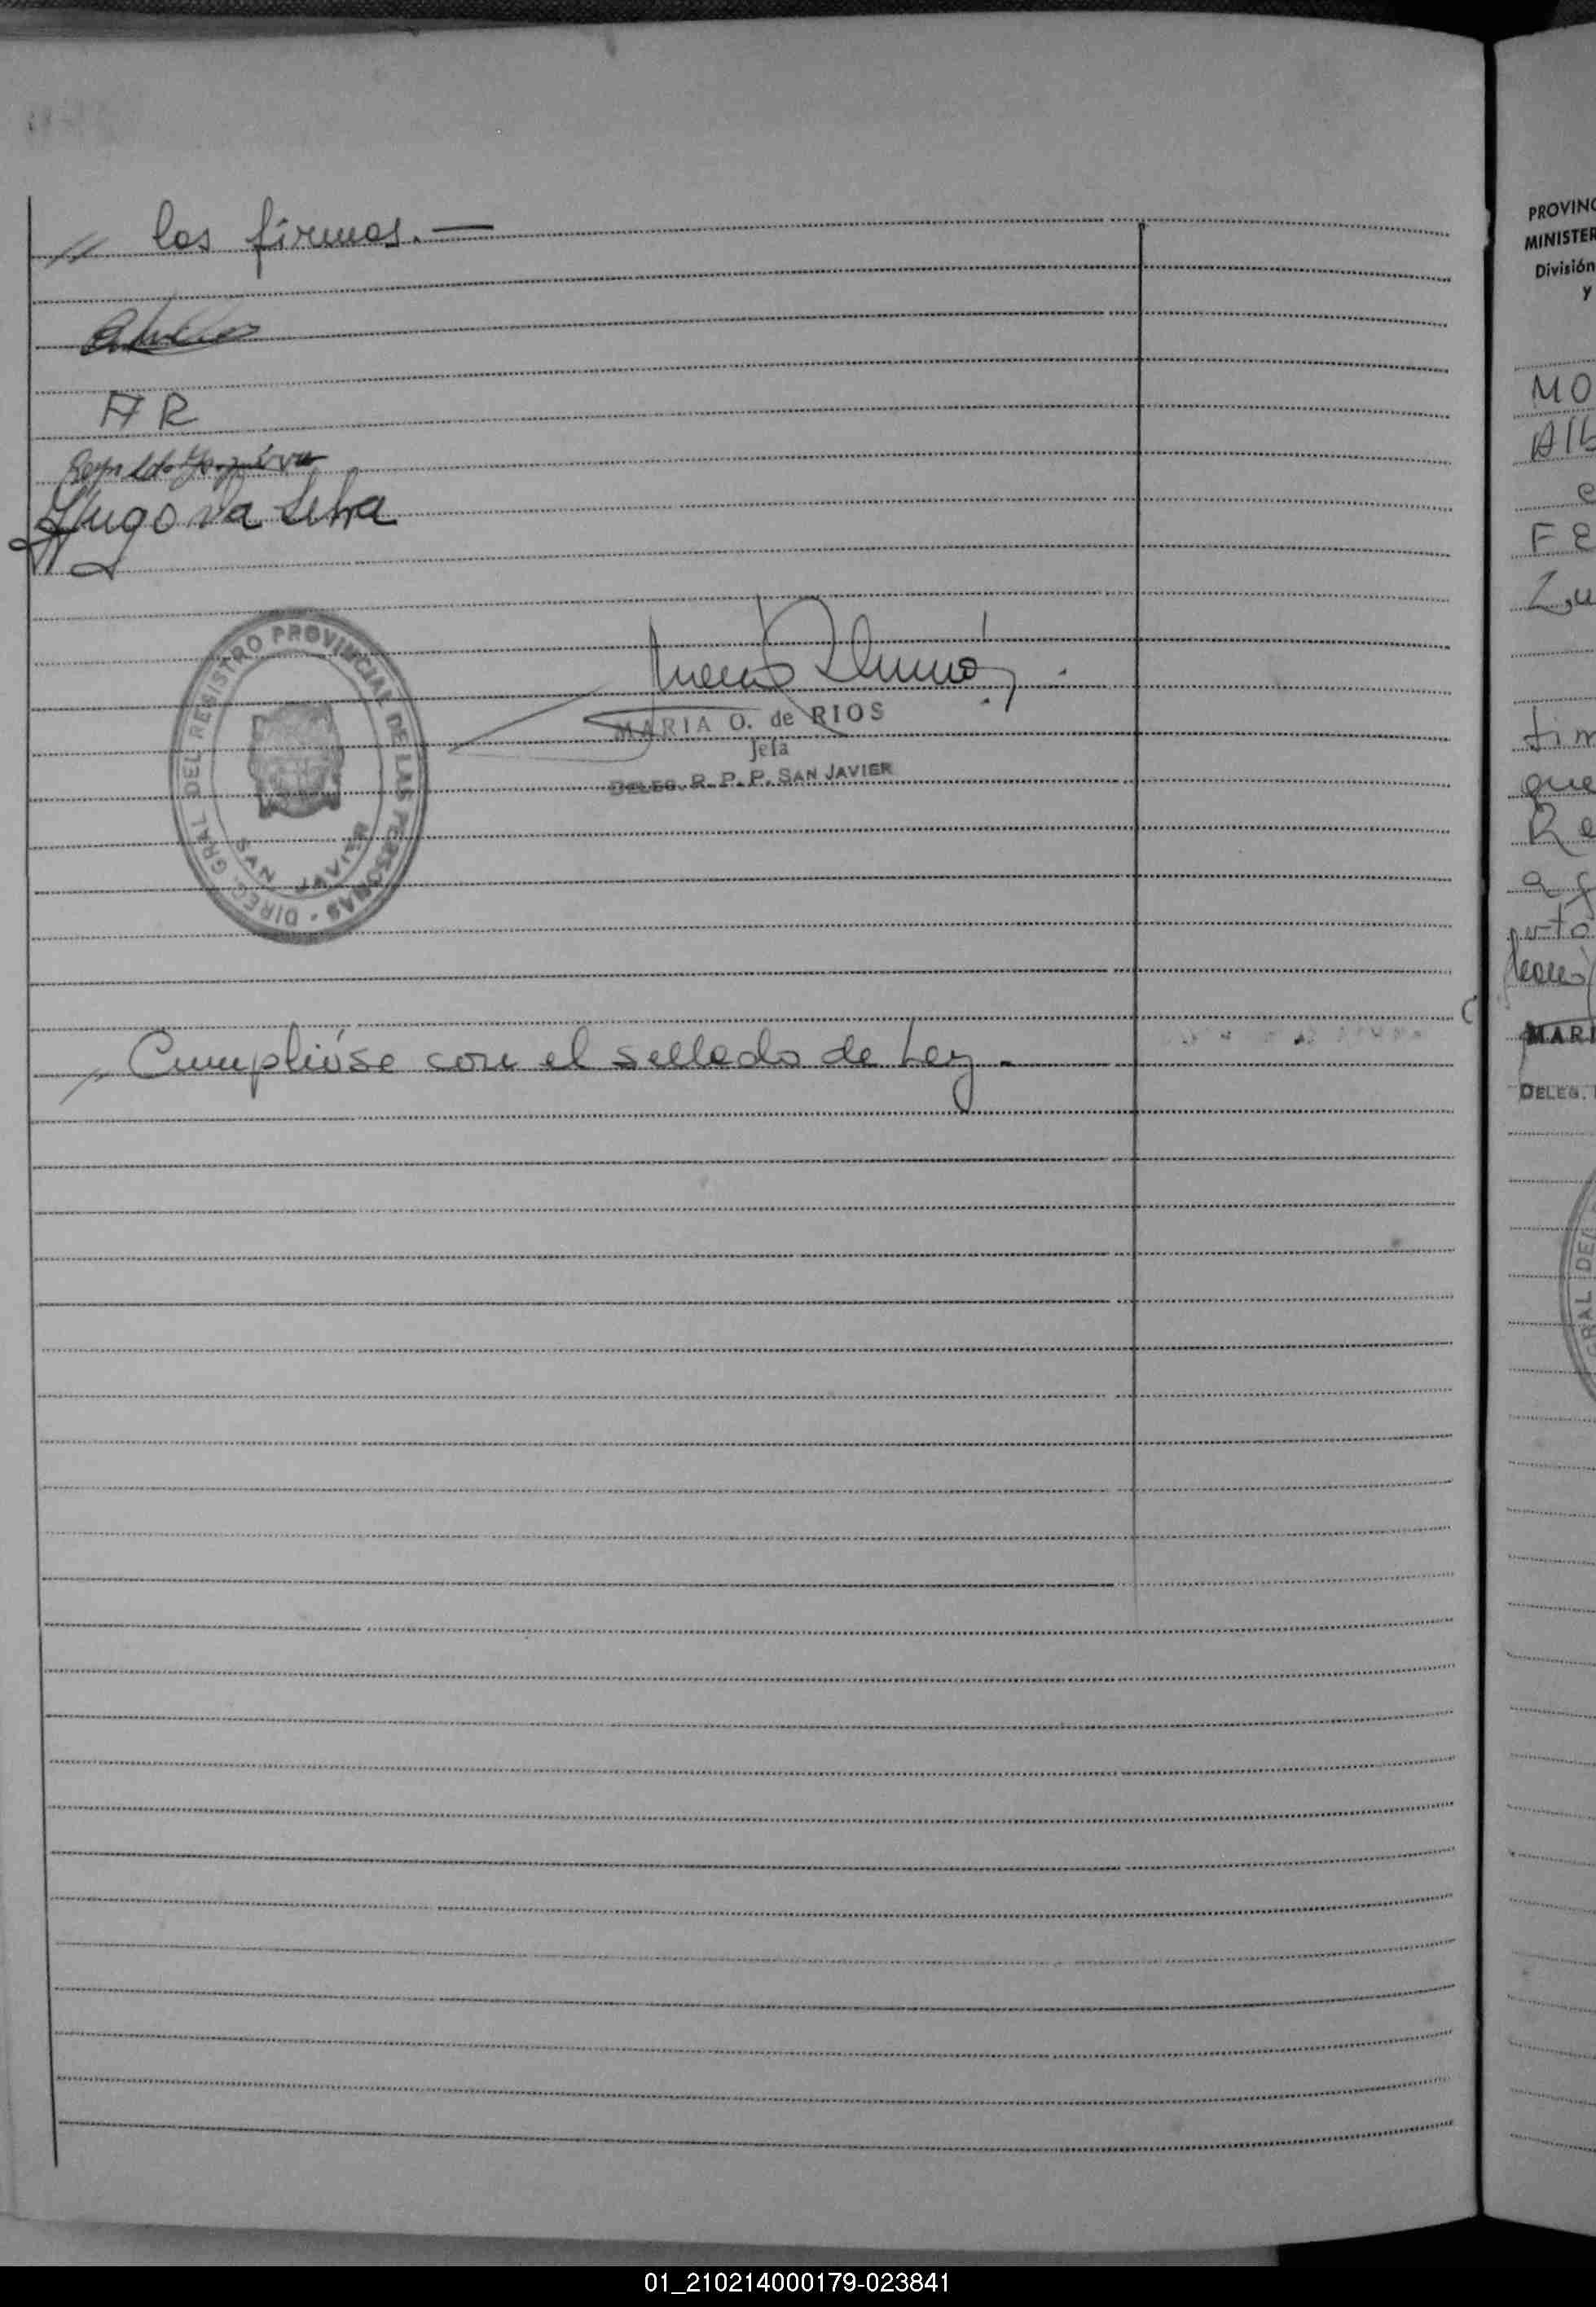 // las firmas.—
A R
Hugo Da Silva
DIREC. GRAL DEL REGISTRO PROVINCIAL DE LAS PERSONAS -
SAN JAVIER
MARIA O. de RIOS
Jefa
DELEG. R. P. P. SAN JAVIER
Cumplióse con el sellado de Ley.-
PROVINC
MINISTER
División
y
MO
Alb
e
FE
Zu
tim
que
Re
a f
MARI
DELEG.
GRAL DE
01_210214000179-023841